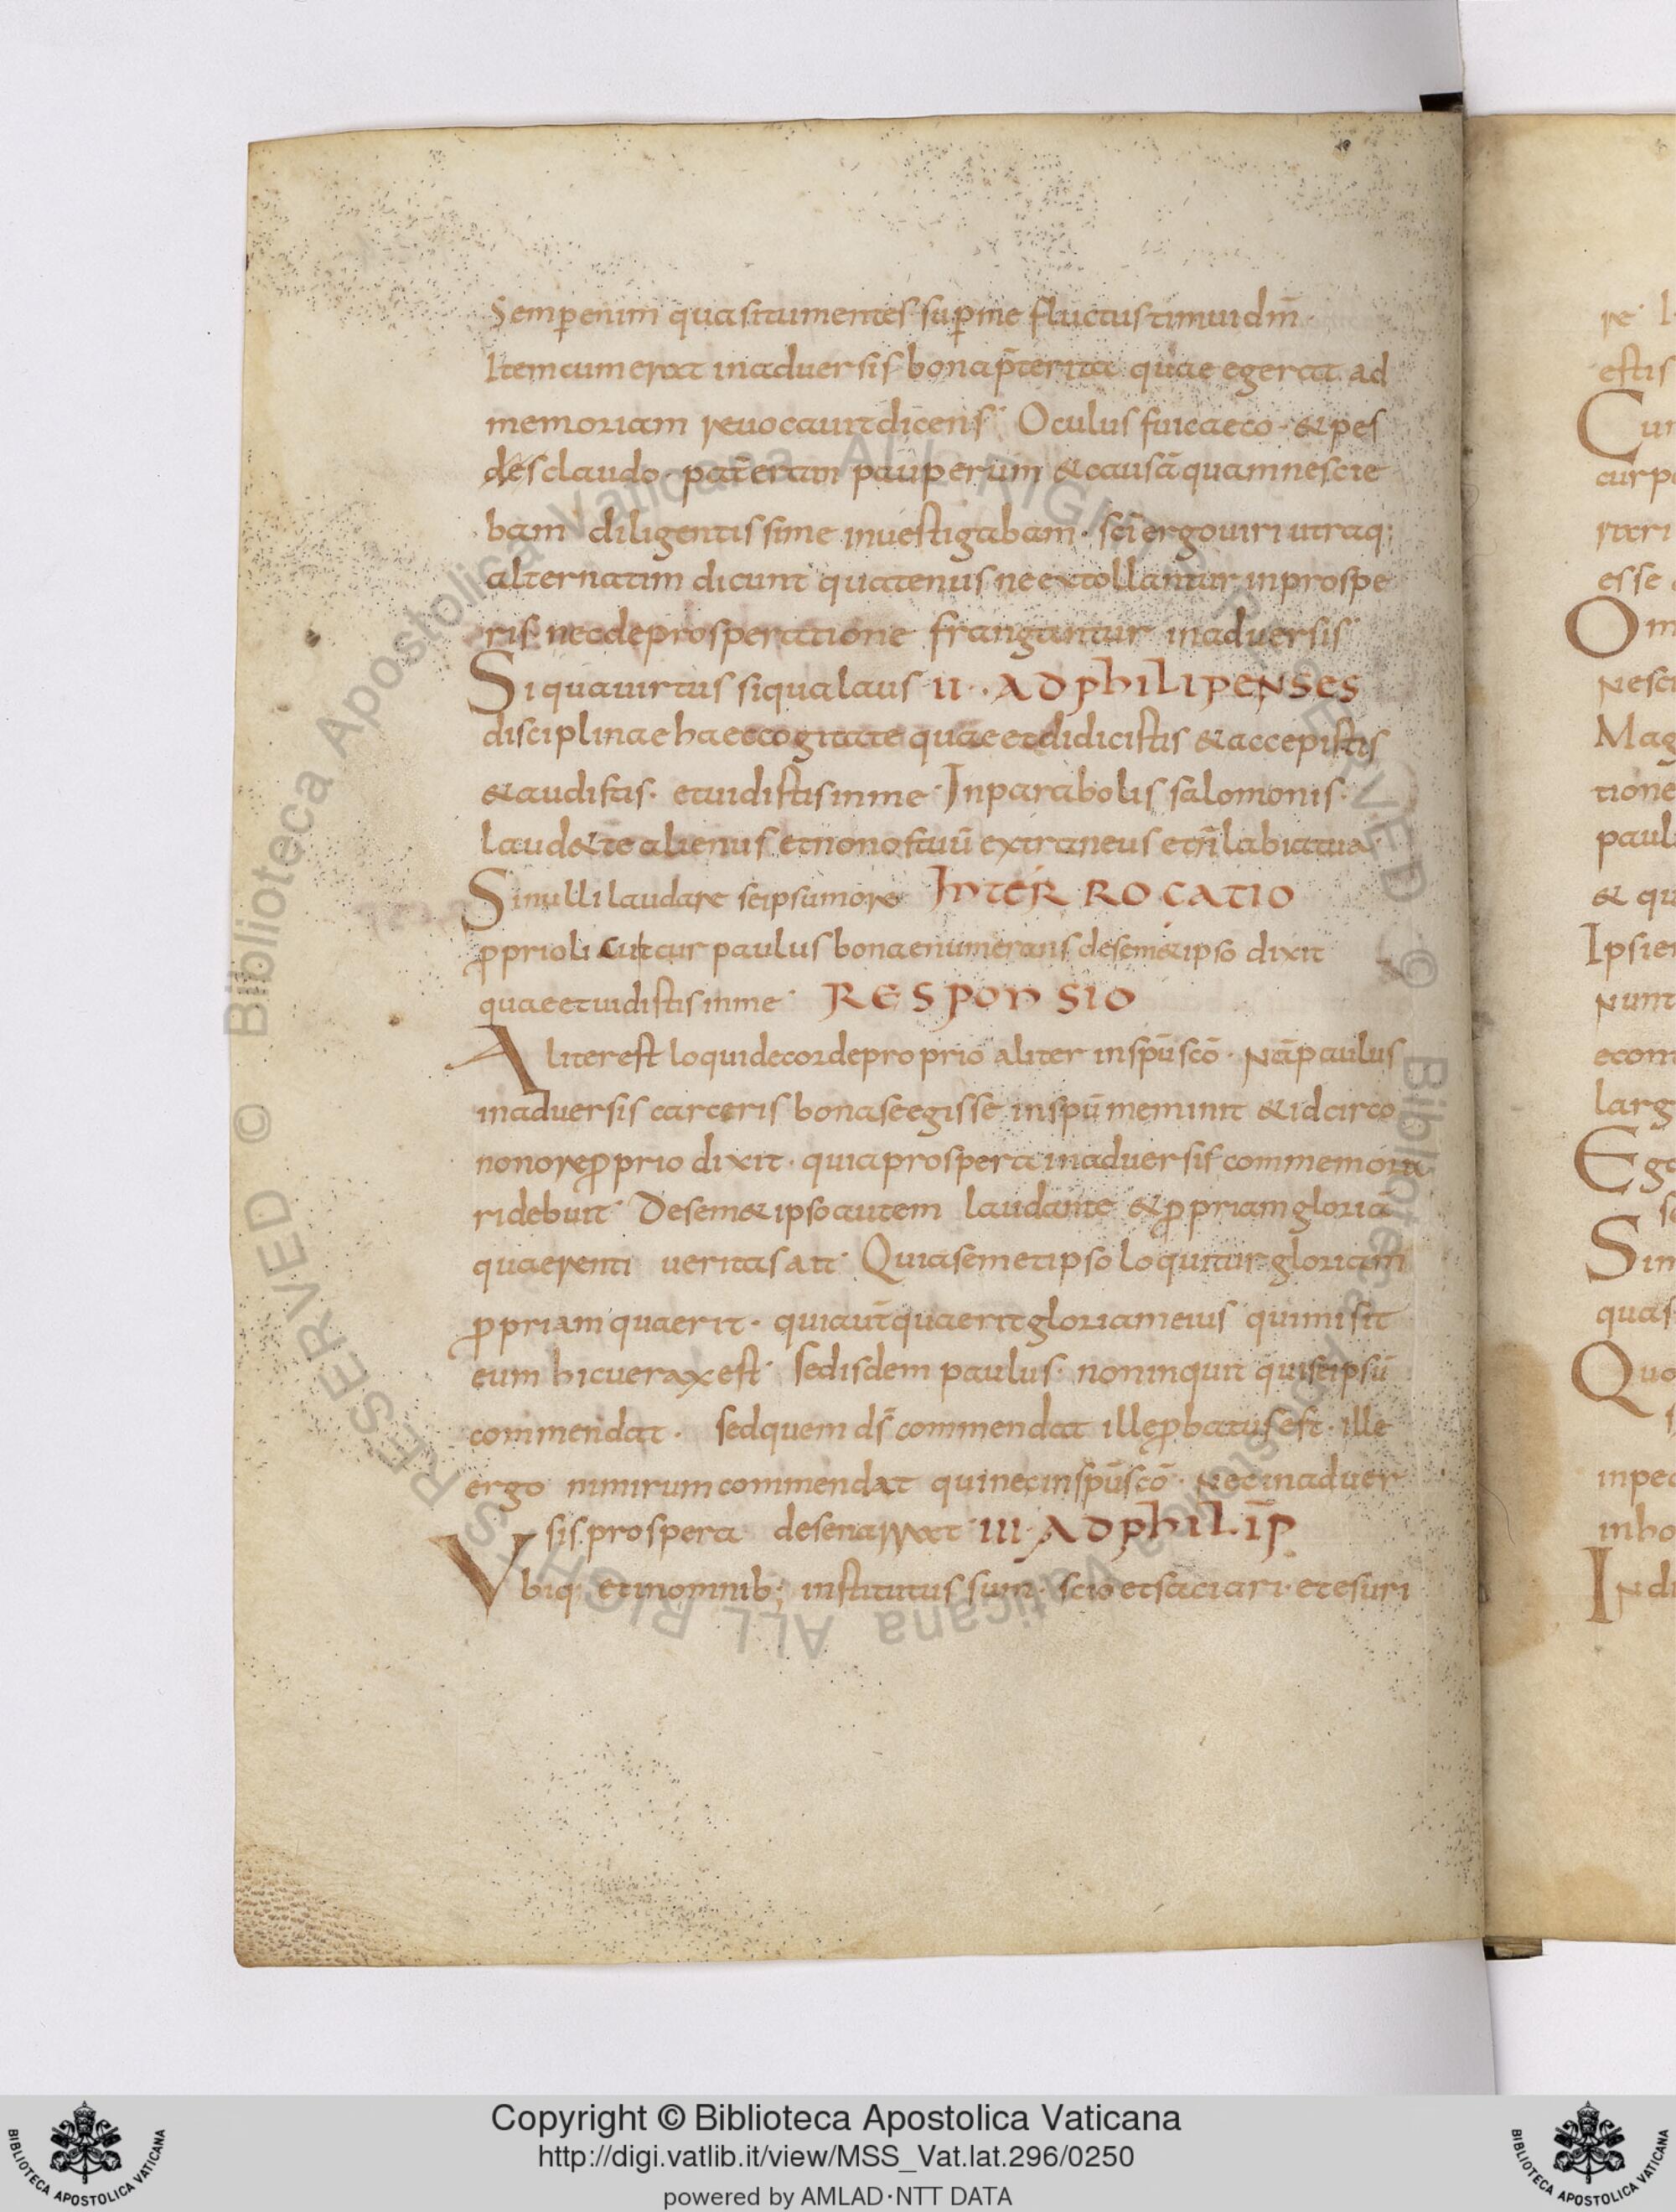 Semp̄ enim quasi tumentes sup̄ me fluctus timui dm̄.
Item cum erat in adversis bona p̄terita quae egerat ad
memoriam revocavit dicens Oculus fui caeco · & pes
des claudo · pat̄ eram pauperum & causā quam nescie
bam diligentissime investigabam · sc̄i ergo viri utraq;
alternatim dicunt quatenus ne extollantur in prospe
ris nec deprosperatione frangantur in adversis
Si qua virtus si qua laus II · AD PHILIPENSES
disciplinae haec cogitate quae et didicistis & accepistis
& audistis · et vidistis in me · In parabolis salomonis ·
laud& te alienus et non os tuū extraneus et n̄ labia tua
Si nulli laudare se ipsum ore INTER ROCATIO
p̄prio li cut cur paulus bona enumerans de sem&ipso dixit
quae et vidistis in me RESPONSIO
Aliter est loqui de corde proprio aliter in sp̄u sc̄o · Nā paulus
in adversis carceris bona se egisse in sp̄u meminit & idcirco
non ore p̄prio dixit · quia prospera in adversis commemora
ri debuit De sem&ipso autem laudante & p̄priam gloriā
quaerenti veritas ait · Qui a semetipso loquitur gloriam
p̄priam quaerit · qui aut̄ quaerit gloriam eius qui misit
eum hic verax est sed isdem paulus · non inquit qui se ipsū
commendat · sed quem ds̄ commendat ille p̄batus est · ille
ergo nimirum commendat qui nec in sp̄u sc̄o · Nec in adver
sis prospera de se narrat III · AD PHILIP̄
Vbiq; et in omnib; institutus sum · scio et saciari · et esuri
re
estis
curp
esse
Nesci
Mag
tione
paul
& qu
Ipsie
Nunt
econ
larg
Ego
Sin
quas
Quo
inpec
inho
Copyright © Biblioteca Apostolica Vaticana
http://digi.vatlib.it/view/MSS_Vat.lat.296/0250
powered by AMLAD·NTT DATA
BIBLIOTECA APOSTOLICA VATICANA
BIBLIOTECA APOSTOLICA VATICANA